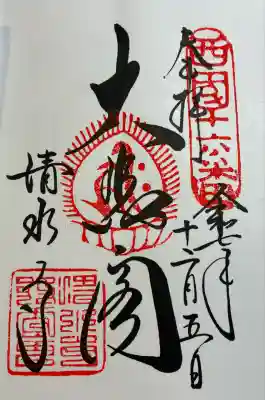 西国十六番
奉拝
令和七年
十二月五日
大悲閣
清水寺